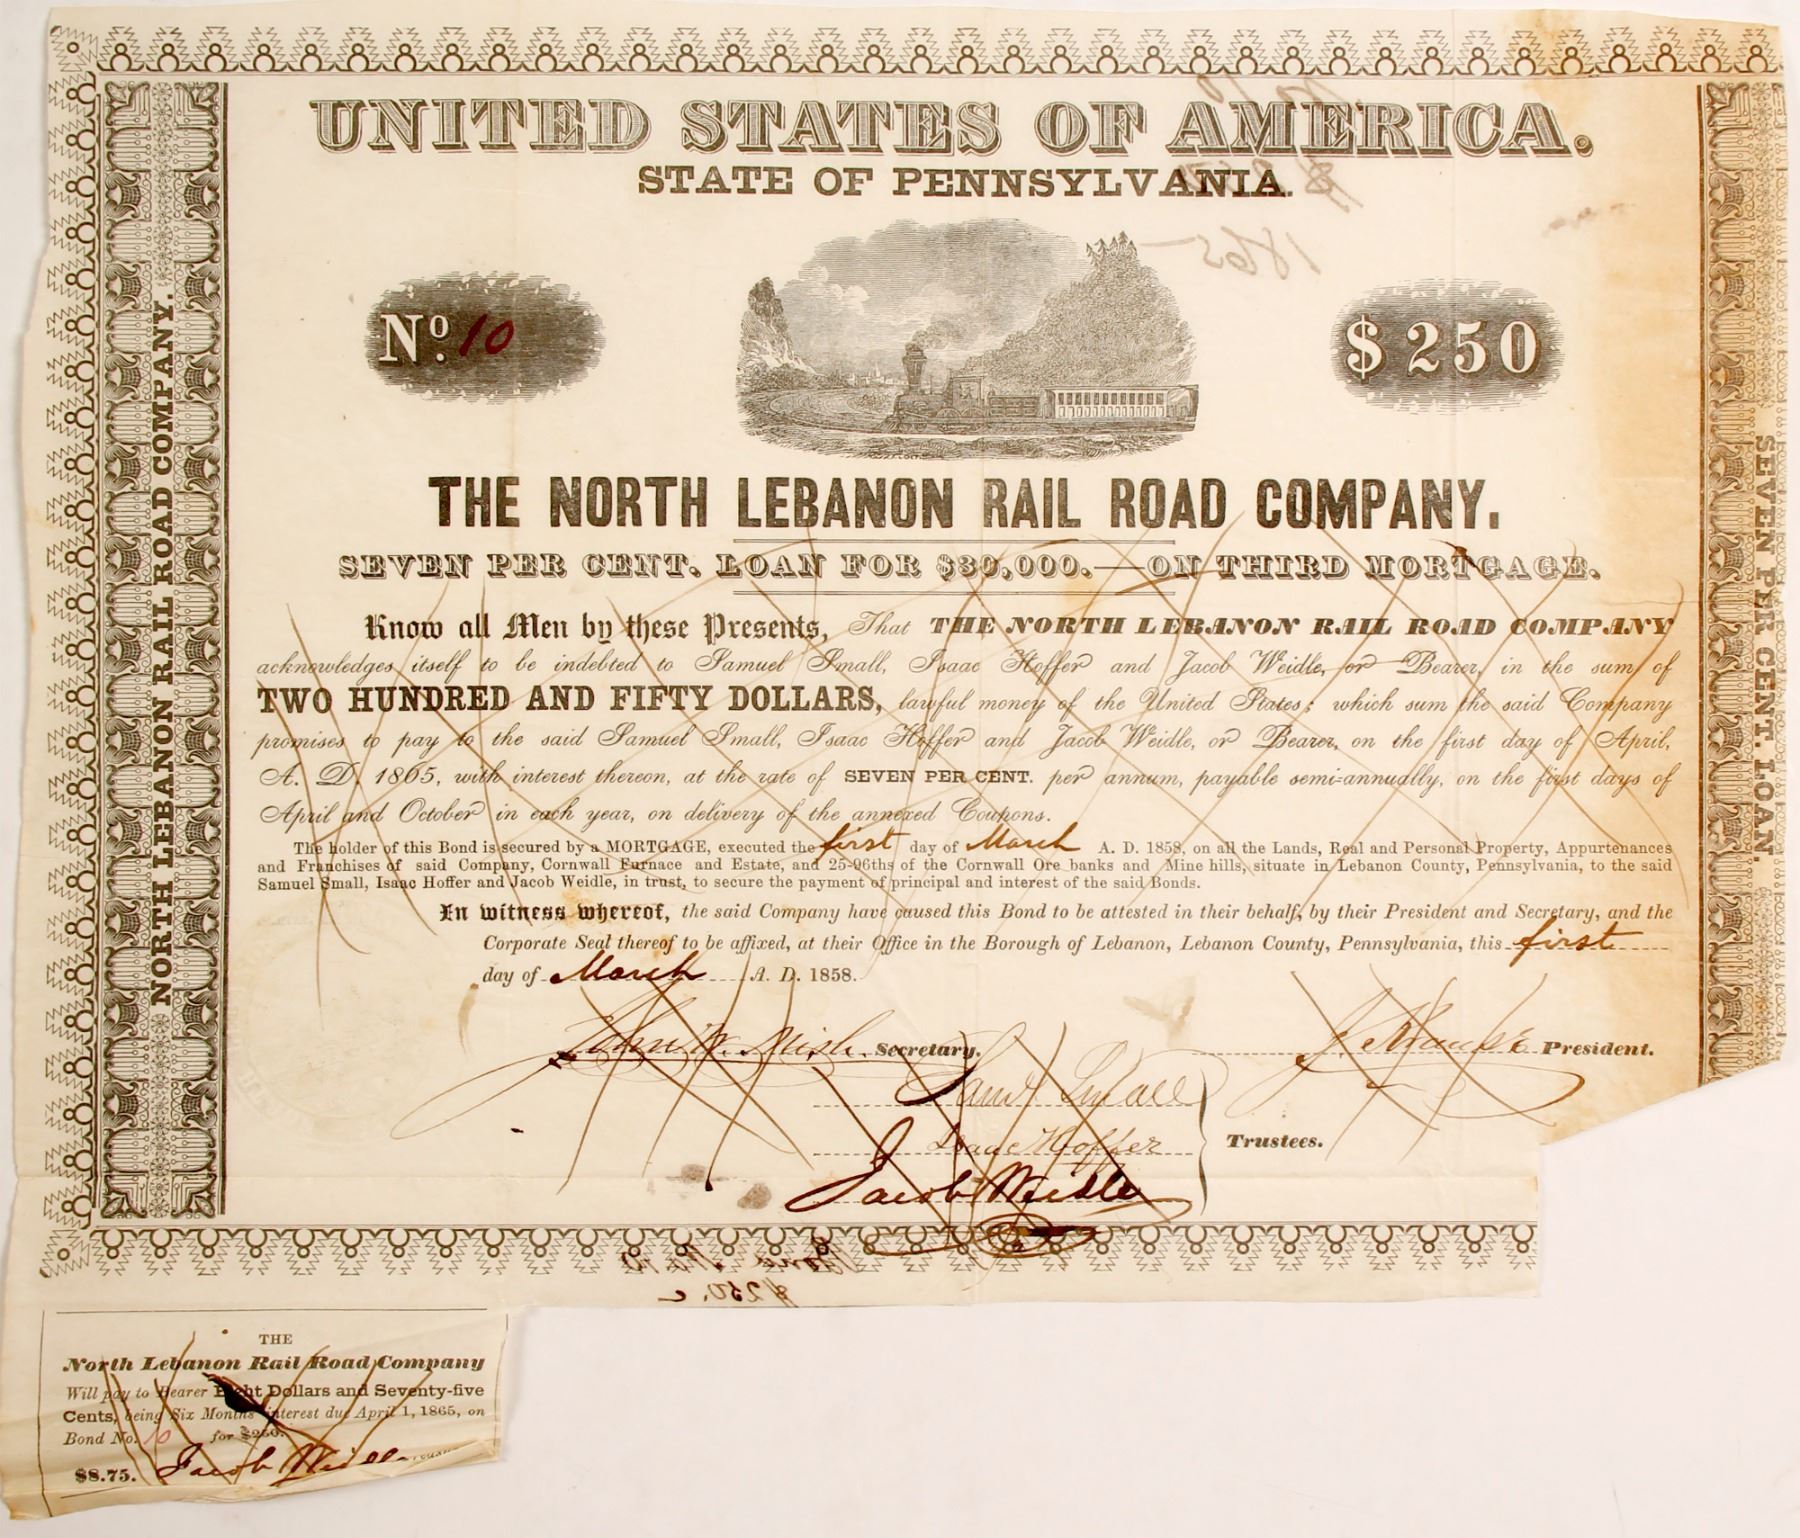 UNITED STATES OF AMERICA.
STATE OF PENNSYLVANIA.
1865
No. 10
$250
THE NORTH LEBANON RAIL ROAD COMPANY.
SEVEN PER CENT. LOAN FOR $30,000.—ON THIRD MORTGAGE.
Know all Men by these Presents, That THE NORTH LEBANON RAIL ROAD COMPANY
acknowledges itself to be indebted to Samuel Small, Isaac Hoffer and Jacob Weidle, or Bearer, in the sum of
TWO HUNDRED AND FIFTY DOLLARS, lawful money of the United States; which sum the said Company
promises to pay to the said Samuel Small, Isaac Hoffer and Jacob Weidle, or Bearer, on the first day of April,
A. D. 1865, with interest thereon, at the rate of SEVEN PER CENT. per annum, payable semi-annually, on the first days of
April and October in each year, on delivery of the annexed Coupons.
The holder of this Bond is secured by a MORTGAGE, executed the first day of March A. D. 1858, on all the Lands, Real and Personal Property, Appurtenances
and Franchises of said Company, Cornwall Furnace and Estate, and 25-96ths of the Cornwall Ore banks and Mine hills, situate in Lebanon County, Pennsylvania, to the said
Samuel Small, Isaac Hoffer and Jacob Weidle, in trust, to secure the payment of principal and interest of the said Bonds.
In witness whereof, the said Company have caused this Bond to be attested in their behalf, by their President and Secretary, and the
Corporate Seal thereof to be affixed, at their Office in the Borough of Lebanon, Lebanon County, Pennsylvania, this first
day of March A. D. 1858.
John W. Mish Secretary.
President.
Saml Small
Isaac Hoffer
Trustees.
Jacob Weidle
NORTH LEBANON RAIL ROAD COMPANY.
SEVEN PER CENT. LOAN.
$250.
THE
North Lebanon Rail Road Company
Will pay to Bearer Eight Dollars and Seventy-five
Cents, being Six Months interest due April 1, 1865, on
Bond No. 10 for $250.
$8.75. Jacob Weidle